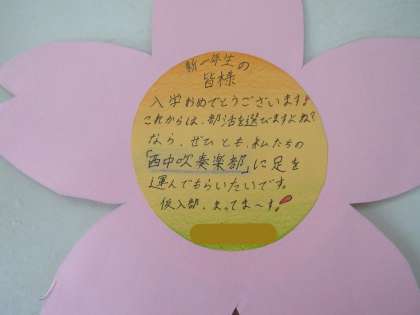 新一年生の
皆様
入学おめでとうございます。
これからは、部活を選びますよね?
なら、ぜひとも、私たちの
「西中吹奏楽部」に足を
運んでもらいたいです。
仮入部、まってま〜す!